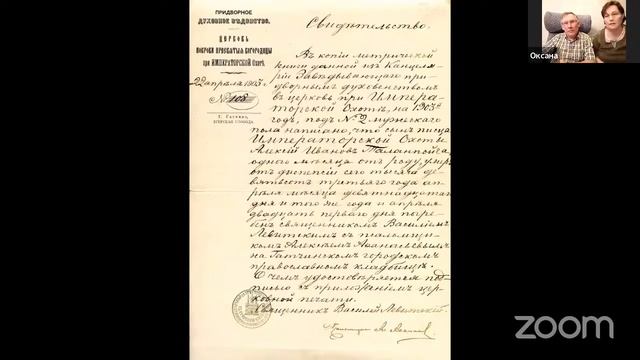 ПРИДВОРНОЕ
ДУХОВНОЕ ВѢДОМСТВО.
ЦЕРКОВЬ
ПОКРОВА ПРЕСВЯТЫЯ БОГОРОДИЦЫ
при ИМПЕРАТОРСКОЙ Охотѣ.
22 апрѣля 1903 г.
№ 108
Г. Гатчина,
ЕГЕРСКАЯ СЛОБОДА.
Свидѣтельство.
Въ копіи метрической
книги данной изъ Канцеля-
ріи Завѣдывающаго при-
дворнымъ духовенствомъ
въ церковь при Импера-
торской Охотѣ, на 1903й
годъ, подъ № 2 мужескаго
пола написано, что сынъ писца
Императорской Охоты
Алексій Ивановъ
одного мѣсяца отъ роду, умеръ
отъ сего тысяча де-
вятьсотъ третьяго года ап-
рѣля мѣсяца девятнадцатаго
дня и того же года и апрѣля
двадцать перваго дня погре-
бенъ священникомъ Василіемъ
Левитскимъ съ псаломщи-
комъ Алексѣемъ Аѳанасьевымъ
на Гатчинскомъ городскомъ
православномъ кладбищѣ.
О чемъ удостовѣряется под-
писью съ приложеніемъ цер-
ковной печати.
Священникъ Василій Левитскій
Оксана
zoom